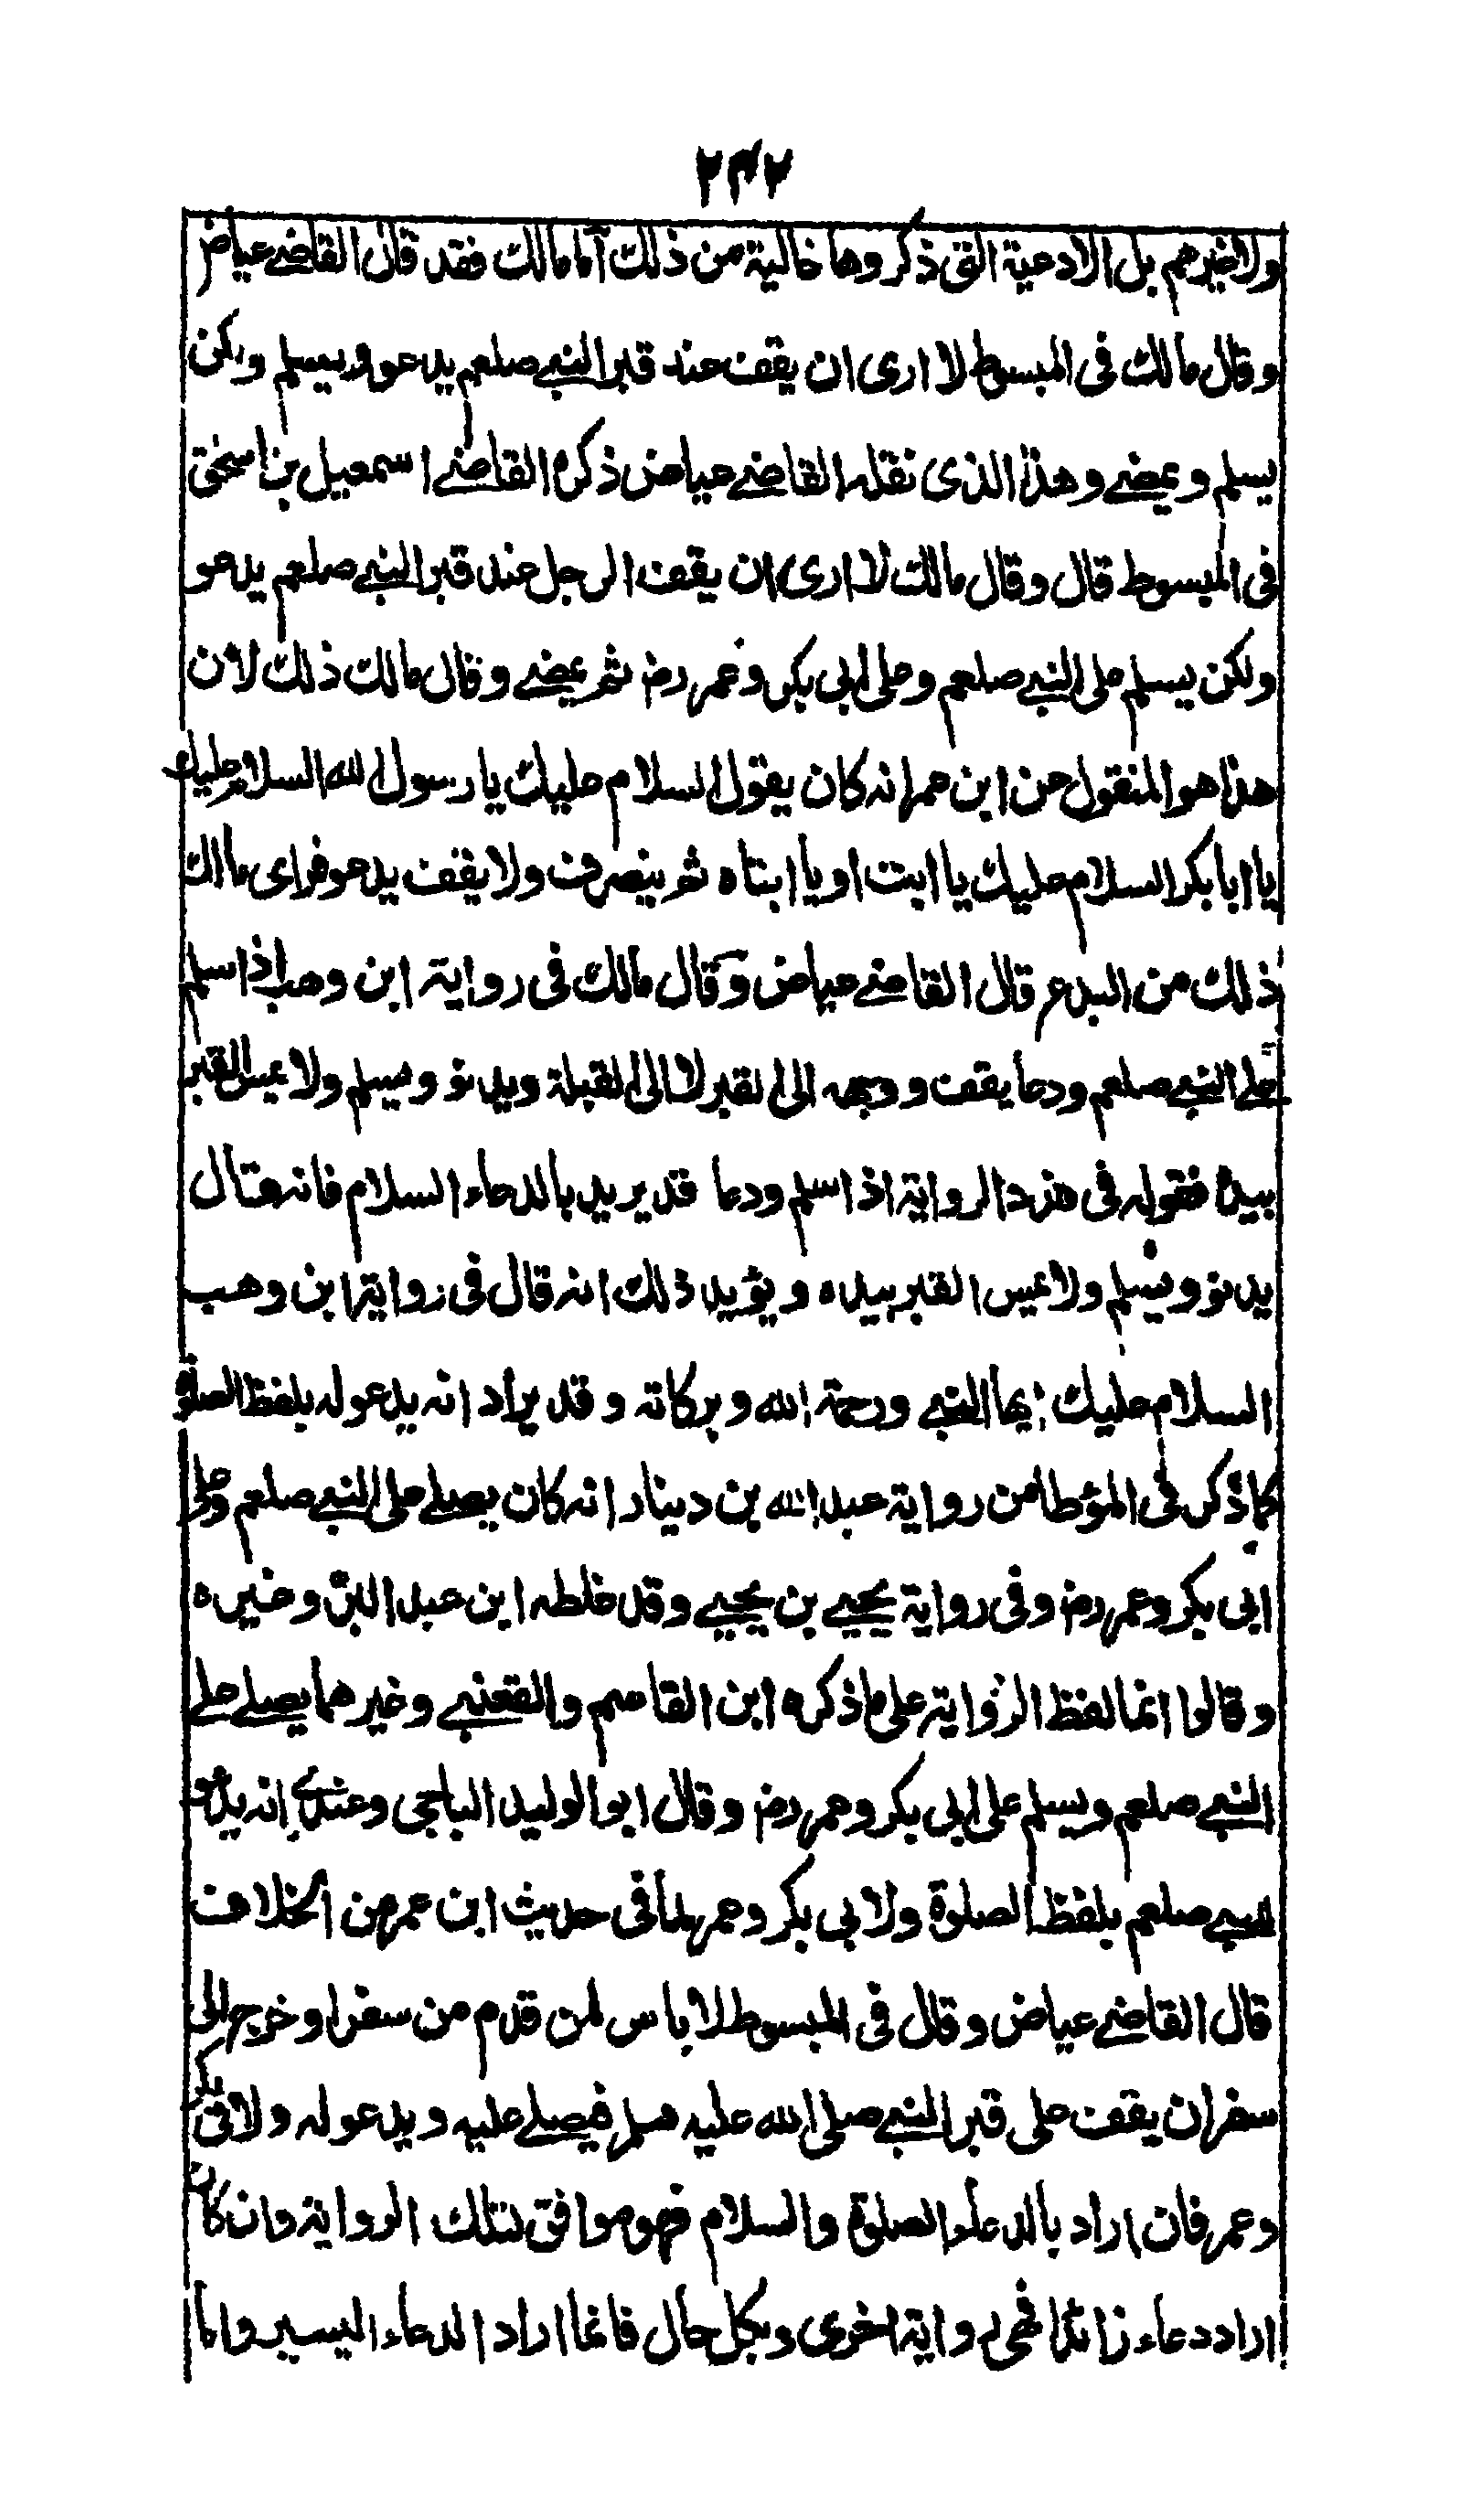 ٢٣٧
ولا غيرهم بل الادعية التى ذكروها خالية من ذلك أما مالك فقد قال القاضے عياض
وقال مالك فى المبسوط لا ارى ان يقف عند قبر النبے صلعم يدعو ويسلم ولكن
يسلم ويمضے وهذا الذى نقله القاضے عياض ذكره القاضے اسمعيل بن اسحٰق
فى المبسوط قال وقال مالك لا ارى ان يقف الرجل عند قبر النبے صلعم يدعو
ولكن يسلم على النبے صلعم وعلى ابى بكر وعمر رض ثم يمضے وقال مالك ذلك لان
هذا هو المنقول عن ابن عمر انه كان يقول السلام عليك يا رسول الله السلام عليك
يا ابا بكر السلام عليك يا ابت او يا ابتاه ثم ينصرف ولا يقف يدعو فراى مالك
ذلك من البدع قال القاضے عياض وقال مالك فى رواية ابن وهب اذا سلم
علے النبے صلعم ودعا يقف ووجهه الى القبر لا الى القبلة ويدنو ويسلم ولا يمس القبر
بيده فقوله فى هذه الرواية اذا سلم ودعا قد يريد بالدعاء السلام فانه قال
يدنو ويسلم ولا يمس القبر بيده ويؤيد ذلك انه قال فى رواية ابن وهب
السلام عليك ايها النبے ورحمة الله وبركاته وقد يراد انه يدعو له بلفظ الصلوة
كما ذكر فى المؤطا من رواية عبد الله بن دينار انه كان يصلے على النبے صلعم وعلى
ابى بكر وعمر رض وفى رواية يحيے بن يحيے وقد غلطه ابن عبد البر وغيره
وقالوا انما لفظ الرواية على ما ذكره ابن القاسم والقعنبے وغيرهما يصلے علے
النبے صلعم ويسلم على ابى بكر وعمر رض وقال ابو الوليد الباجى وعندى انه يدعو
للنبے صلعم بلفظ الصلوة ولابى بكر وعمر لما فى حديث ابن عمر من الخلاف
قال القاضے عياض وقال فى المبسوط لا باس لمن قدم من سفر او خرج الى
سفر ان يقف على قبر النبے صلى الله عليه وسلم فيصلے عليه ويدعو له ولابى بكر
وعمر فان اراد بالدعاء الصلوة والسلام فهو موافق لتلك الرواية وان كان
اراد دعاء زائدا فهى رواية اخرى وبكل حال فانما اراد الدعاء اليسير واما